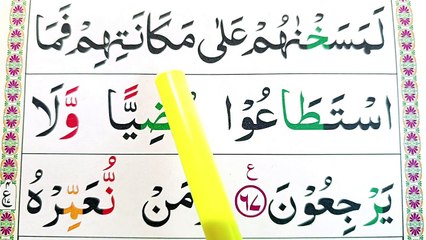 لَمَسَخْنٰهُمْ عَلٰى مَكَانَتِهِمْ فَمَا
اسْتَطَاعُوْا مُضِيًّا وَّلَا
يَرْجِعُوْنَ ۝٦٧ وَمَنْ نُّعَمِّرْهُ